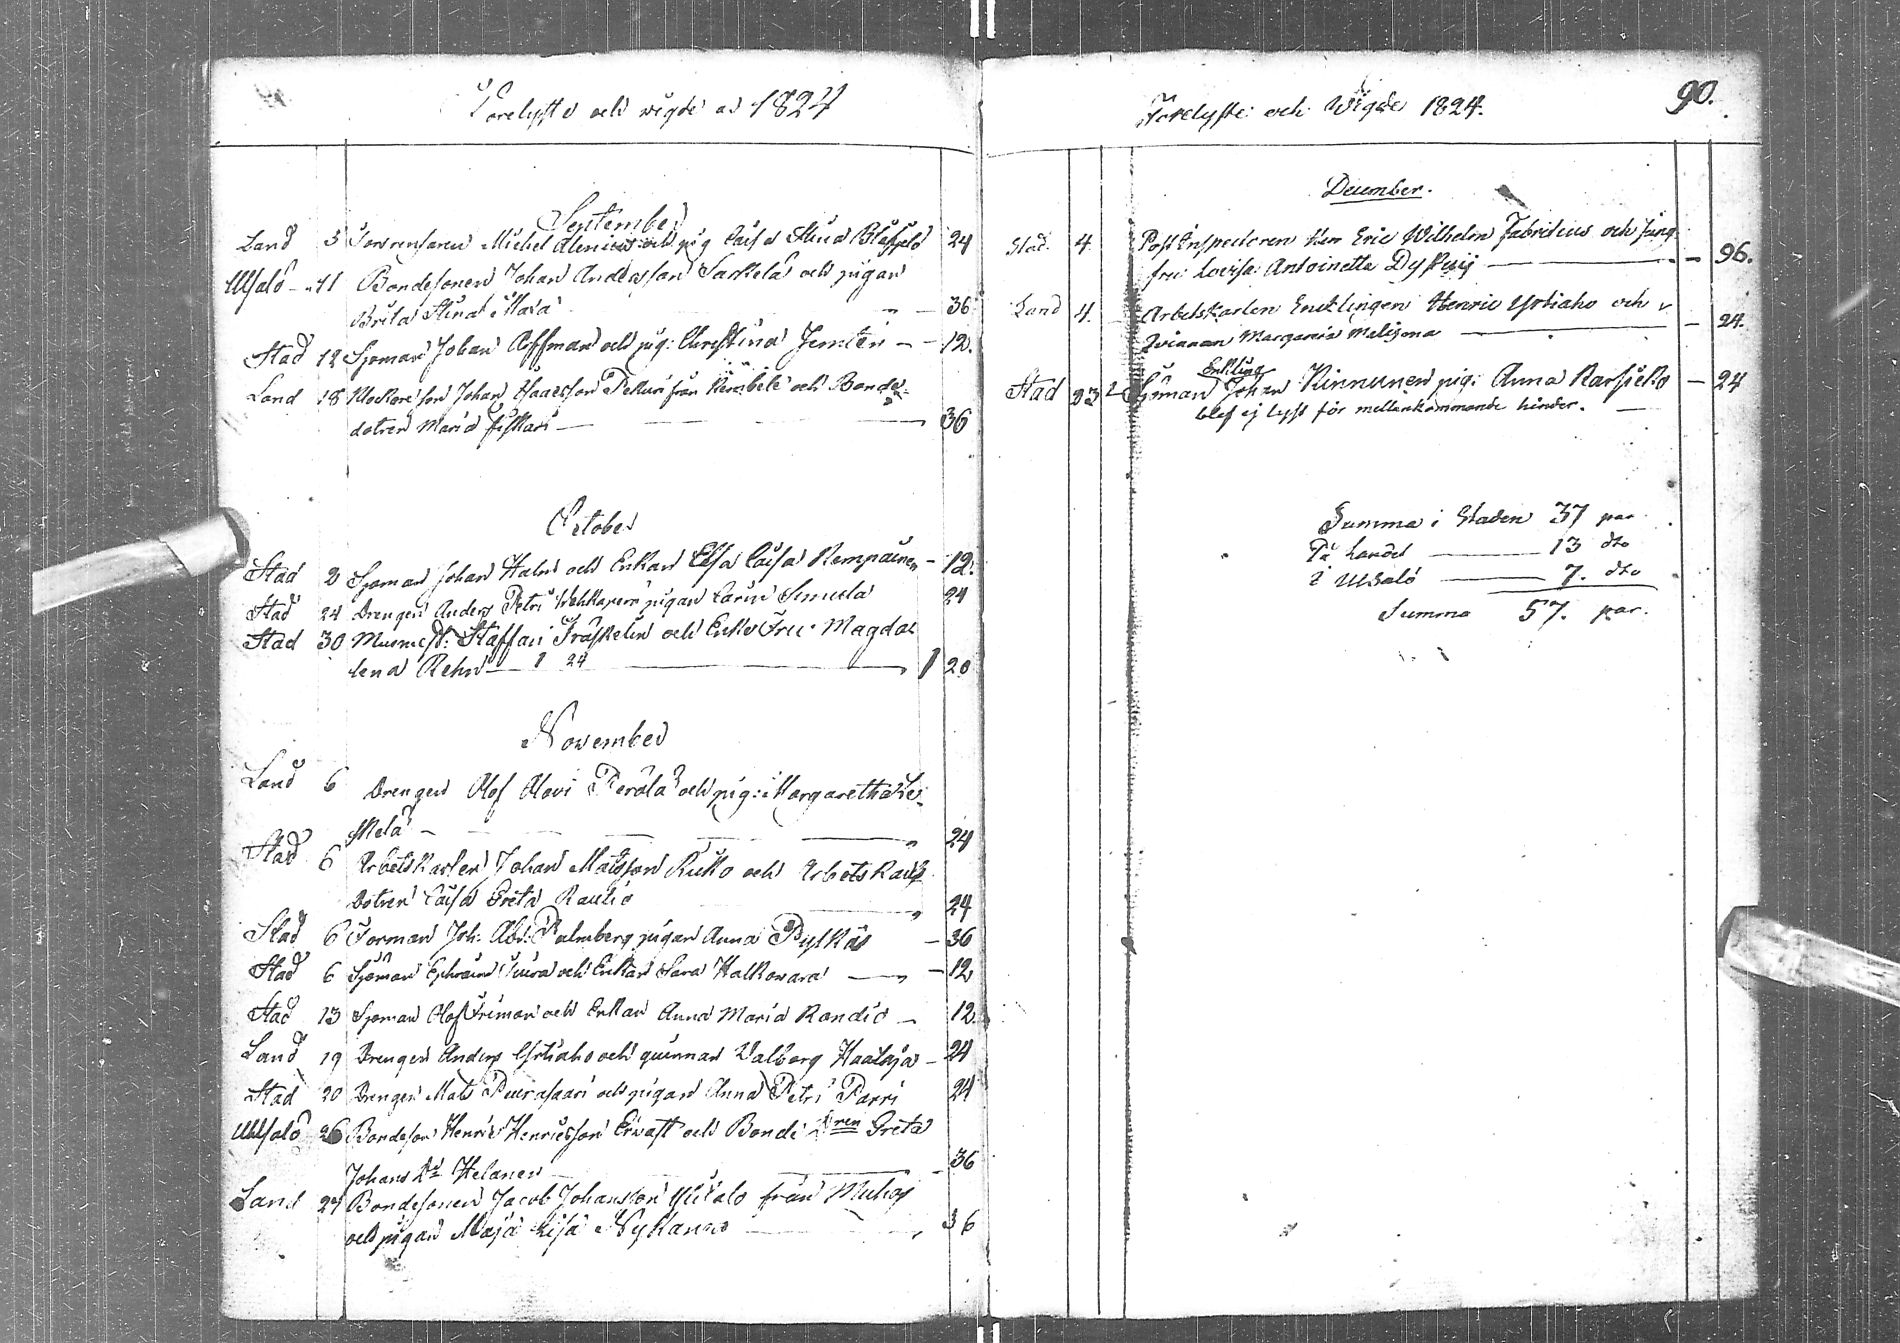 Förelyste och wigde ad 1824
September
Land 5 Michel och pig Caisa Stina 24
Uhlalo 11 Bondesonen Johan Andersson Sarkela och pigan
Brita Stina Mara 36
Stad 12 Sjöman Johan Hoffman och pig: Christina Jemten 12.
Land 18 Klockare son Johan Isaacsson Pekuri från Kembele och Bonde
dotren Maria 36
October
Stad 2 Sjöman Johan Halin och Enkan Elsa Caisa Kempainen 12.
Stad 24 Drengen Anders Petri pigan Carin 24
Stad 30 Staffan Fraskelin och Enke Fru Magda
lena Rehn 1 24 1 20
November
Land 6 Drengen Olof Olovi Perälä och pig: Margaretha Le
skelä 24
Stad 6 Arbetskarlen Johan Matsson Kuko och Arbetskarls
dotren Caisa Greta Rautio 24
Stad 6 Forman Joh: Abr: Palmberg pigan Anna Pylkäs 36
Stad 6 Sjöman Ephraim och Enkan Sara Halkowara 12
Stad 13 Sjöman Olof Friman och Enkan Anna Maria Randio 12.
Land 19 Drengen Anders Yrtiaho och quinnan Valborg Haataja 24
Stad 20 Drengen Mats Puurasaari och pigan Anna Petri Parri 24
26 Bondeson Henric Henricsson Erwast och Bonde dren Greta
Johans dr Helanen 36
Land 27 Bondesonen Jacob Johansson från Muhos
och pigan Maja Lisa Nykänen 36
Förelyste och Wigde 1824. 90.
December.
Stad 4. Post Inspectoren Herr Eric Wilhelm Fabritius och Jung
fru Lovisa Antoinetta 96.
Land 4. Arbetskarlen Encklingen Henric Yrtiaho och
Qvinnan Margareta 24.
Enkling
Stad 23 Sjöman Johan Kinnunen pig: Anna Karsicko 24
blef ej lyst för mellankommande hinder.
Summa i Staden 37 par
På landet 13 dto
I Uhlalo 7. dto
Summa 57. par.